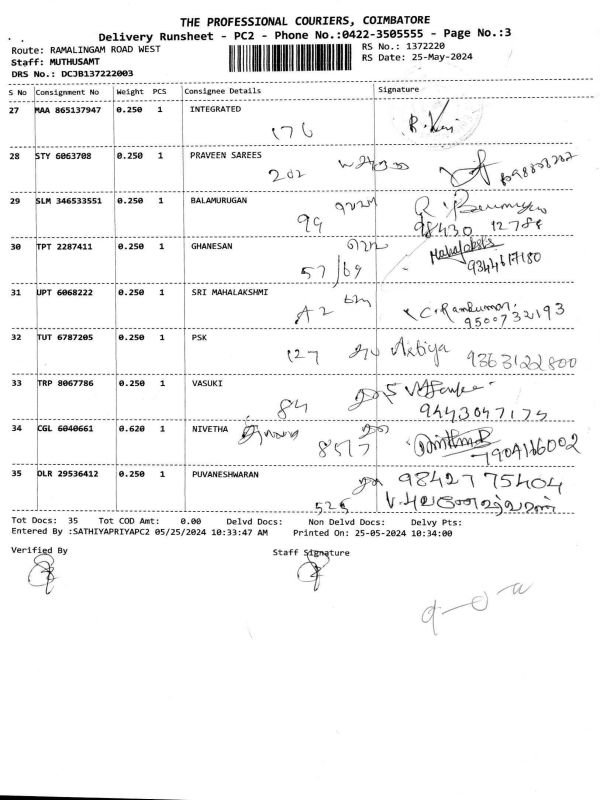 THE PROFESSIONAL COURIERS, COIMBATORE
Delivery Runsheet - PC2 - Phone No.:0422-3505555 - Page No.:3
Route: RAMALINGAM ROAD WEST RS No.: 1372220
Staff: MUTHUSAMT RS Date: 25-May-2024
DRS No.: DCJB137222003
S No Consignment No Weight PCS Consignee Details Signature
27 MAA 865137947 0.250 1 INTEGRATED
176
28 STY 6063708 0.250 1 PRAVEEN SAREES
202
29 SLM 346533551 0.250 1 BALAMURUGAN
99 98430 12788
30 TPT 2287411 0.250 1 GHANESAN
57/69 Mahalakshmi 9344617180
31 UPT 6068222 0.250 1 SRI MAHALAKSHMI
A2 C. Ramkumar. 9500732193
32 TUT 6787205 0.250 1 PSK
127 9363122800
33 TRP 8067786 0.250 1 VASUKI
84 9443047175
34 CGL 6040661 0.620 1 NIVETHA
7904166002
35 DLR 29536412 0.250 1 PUVANESHWARAN
98427 75404
525
Tot Docs: 35 Tot COD Amt: 0.00 Delvd Docs: Non Delvd Docs: Delvy Pts:
Entered By :SATHIYAPRIYAPC2 05/25/2024 10:33:47 AM Printed On: 25-05-2024 10:34:00
Verified By Staff Signature